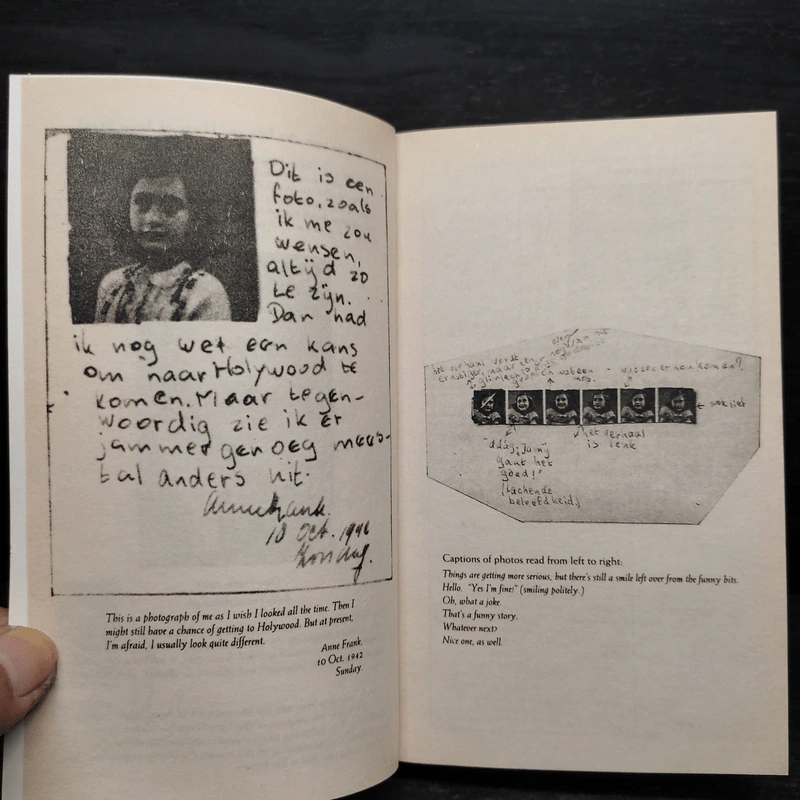 Dit is een
foto, zoals
ik me zou
wensen,
altijd zo
te zijn.
Dan had
ik nog wel een kans
om naar Holywood te
komen. Maar tegen-
woordig zie ik er
jammer genoeg mees-
tal anders uit.
Anne Frank.
10 Oct. 1942
Zondag.
This is a photograph of me as I wish I looked all the time. Then I
might still have a chance of getting to Holywood. But at present,
I'm afraid, I usually look quite different.
Anne Frank.
10 Oct. 1942
Sunday.
het verhaal wordt
ernstiger, maar er
nog van het
ook niet
het verhaal
is leuk
"dáág, Ja mij
gaat het
goed!"
(lachende
beleefdheid)
Captions of photos read from left to right:
Things are getting more serious, but there's still a smile left over from the funny bits.
Hello. "Yes I'm fine!" (smiling politely.)
Oh, what a joke.
That's a funny story.
Whatever next?
Nice one, as well.